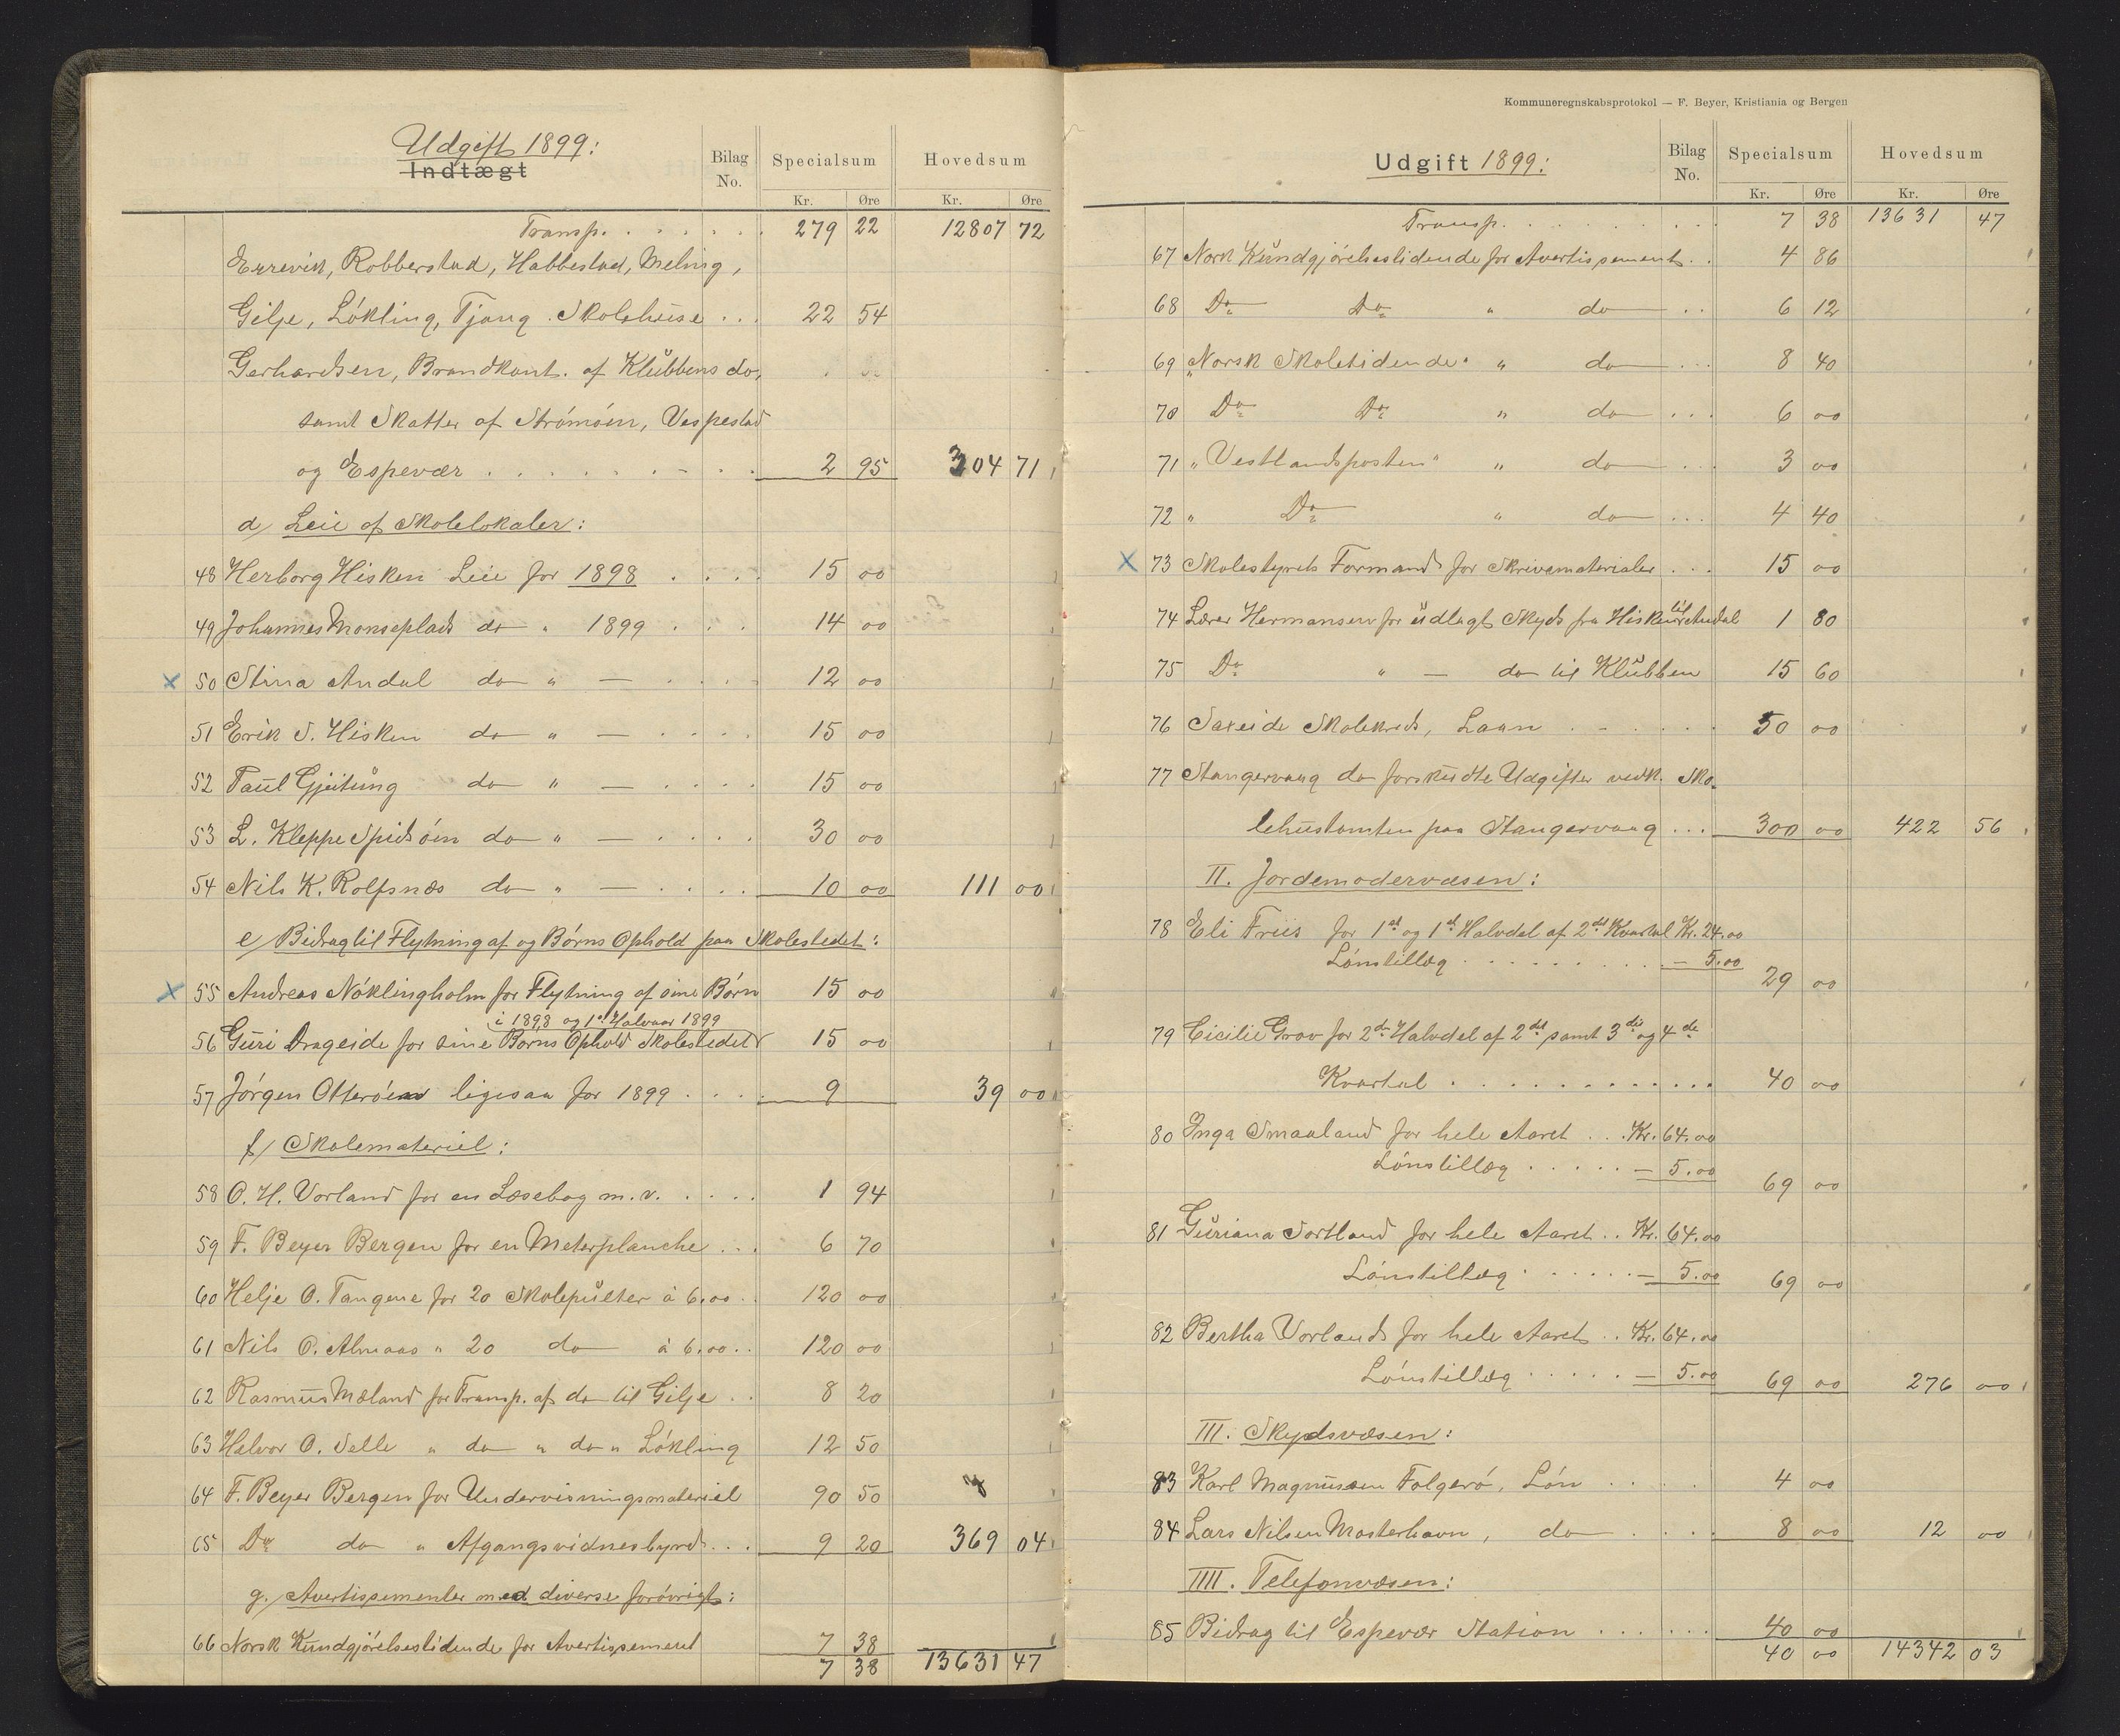 Udgift 1899:
Indtægt
Bilag No.
Specialsum
Hovedsum
Kr. Øre Kr. Øre
Transp. . . . . . . 279 22 12807 72
Eurevik, Robberstad, Habbestad, Meling,
Gilje, Løkling, Tjong Skolehuse . . . 22 54
Gerhardsen, Brandkont. af Klubbens do,
samt Skatter af Strømøen, Vespestad
og Espevær . . . . . . . . . 2 95 304 71
d/ Leie af Skolelokaler:
48 Herborg Hisken Leie for 1898 . . . . 15 00
49 Johannes Monseplads do " 1899 . . . 14 00
x 50 Stina Andal do " — . . . . 12 00
51 Erik S. Hisken do " — . . . . 15 00
52 Paul Gjeitung do " — . . . . 15 00
53 L. Kleppe Spidsøen do " — . . . . 30 00
54 Nils K. Rolfsnæs do " — . . . . 10 00 111 00
e/ Bidrag til Flytning af og Børns Ophold paa Skolestedet:
x 55 Andreas Nøklingholm for Flytning af sine Børn 15 00
i 1898 og 1ste Halvaar 1899
56 Guri Drageide for sine Børns Ophold Skolestedet 15 00
57 Jørgen Otterøen ligesaa for 1899 . . . . 9 39 00
f/ Skolemateriel:
58 O. H. Vorland for en Læsebog m. v. . . . . 1 94
59 F. Beyer Bergen for en Meterplanche . . . 6 70
60 Helje O. Tangene for 20 Skolepulter à 6.00 . . 120 00
61 Nils O. Almaas " 20 do à 6.00 . . 120 00
62 Rasmus Mæland for Transp. af do til Gilje . . 8 20
63 Halvor O. Selle " do " do " Løkling 12 50
64 F. Beyer Bergen for Undervisningsmateriel 90 50
65 Do do " Afgangsvidnesbyrd . . . 9 20 369 04
g./ Avertissementer med diverse forøvrigt:
66 Norsk Kundgjørelsestidende for Avertissement 7 38
7 38 13631 47
Kommuneregnskabsprotokol — F. Beyer, Kristiania og Bergen
Udgift 1899:
Bilag No.
Specialsum
Hovedsum
Kr. Øre Kr. Øre
Transp. . . . . . . . . 7 38 13631 47
67 Norsk Kundgjørelsestidende for Avertissement . . 4 86
68 Do Do " do . . 6 12
69 "Norsk Skoletidende" " do . . . 8 40
70 Do Do " do . . . 6 00
71 "Vestlandsposten" " do . . . 3 00
72 " Do " do . . . 4 40
x 73 Skolestyrets Formand for Skrivematerialer . . . 15 00
74 Lærer Hermansen for udlagt Skyds fra Hisken til Andal 1 80
75 Do " — do til Klubben 15 60
76 Saxeide Skolekreds, Laan . . . . . 50 00
77 Stangervaag do forskudte Udgifter vedk. Sko-
lehustomten paa Stangervaag . . . 300 00 422 56
II. Jordemodervæsen:
78 Eli Friis for 1ste og 1ste Halvdel af 2det Kvartal Kr. 24.00
Lønstillæg . . . . . . . . . — 5.00
29 00
79 Cicilie Grov for 2den Halvdel af 2det samt 3die og 4de
Kvartal . . . . . . . . . . . . 40 00
80 Inga Smaaland for hele Aaret . . . Kr. 64.00
Lønstillæg . . . . . — 5.00
69 00
81 Guriana Sortland for hele Aaret . . Kr. 64.00
Lønstillæg . . . . . . — 5.00 69 00
82 Bertha Vorland for hele Aaret . . Kr. 64.00
Lønstillæg . . . . . — 5.00 69 00 276 00
III. Skydsvæsen:
83 Karl Magnusen Folgerø, Løn . . . . 4 00
84 Lars Nilsen Mosterhavn, do . . . . 8 00 12 00
IIII. Telefonvæsen:
85 Bidrag til Espevær Station . . . . . . 40 00
40 00 14342 03